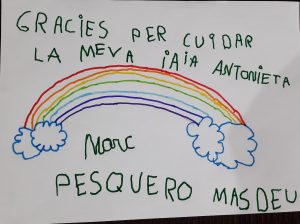 GRACIES PER CUIDAR
LA MEVA IAIA ANTONIETA
Marc
PESQUERO MASDEU